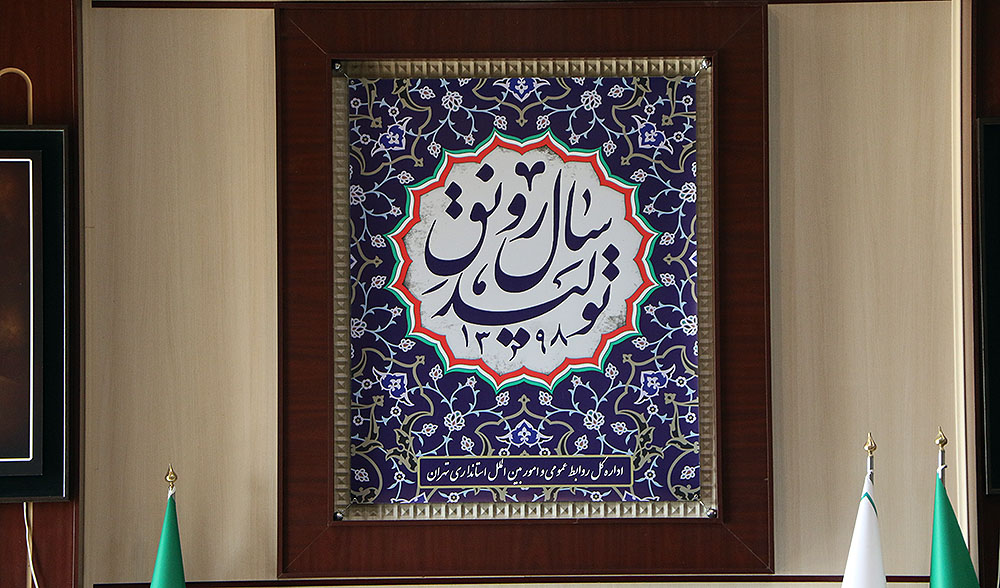 سال رونق
تولید
۱۳۹۸
اداره کل روابط عمومی و امور بین الملل استانداری تهران